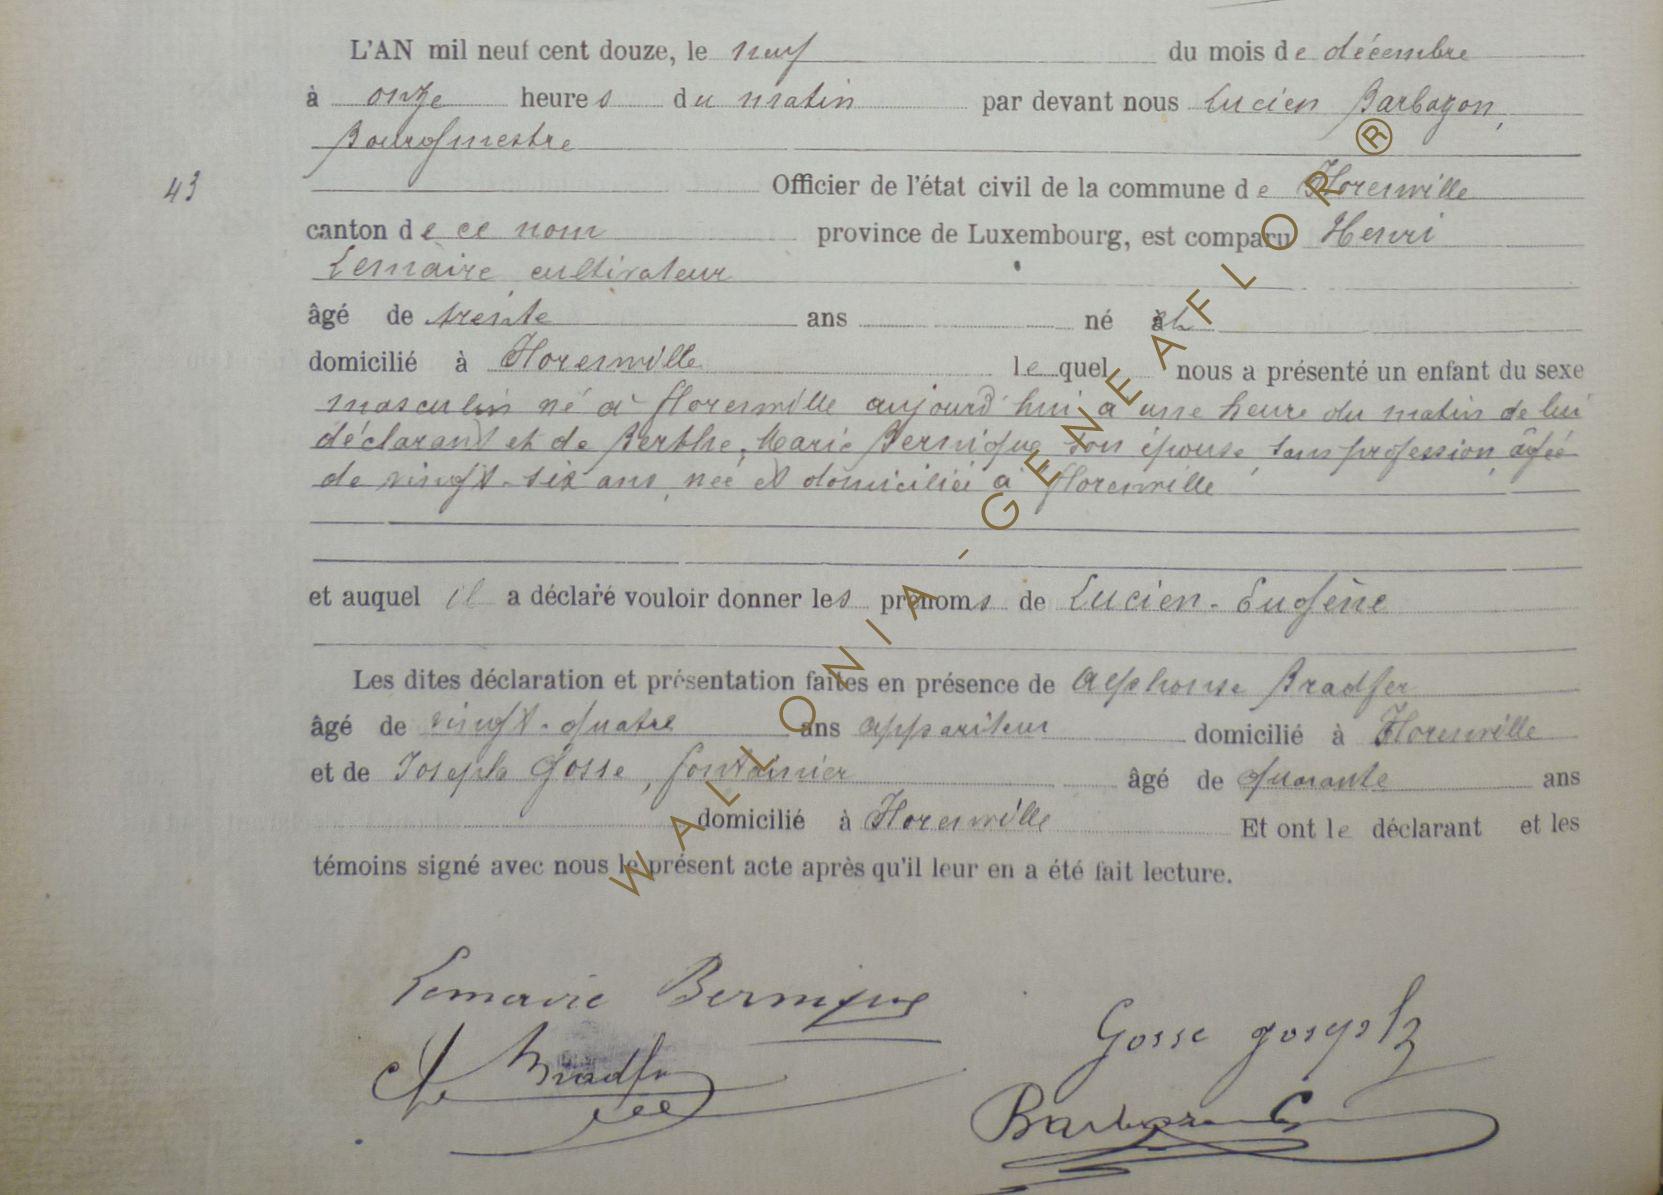 L'AN mil neuf cent douze, le neuf du mois de décembre
à onze heures du matin par devant nous Lucien Barbazon,
Bourgmestre
43 Officier de l'état civil de la commune de Florenville
canton de ce nom province de Luxembourg, est comparu Henri
Lemaire cultivateur
âgé de trente ans né et
domicilié à Florenville lequel nous a présenté un enfant du sexe
masculin né à Florenville aujourd'hui à une heure du matin de lui
déclarant et de Berthe, Marie Bernique son épouse, sans profession, âgée
de vingt-six ans, née et domiciliée à Florenville
et auquel il a déclaré vouloir donner les prénoms de Lucien-Eugène
Les dites déclaration et présentation faites en présence de Alphonse Bradfer
âgé de vingt-quatre ans appariteur domicilié à Florenville
et de Joseph Gosse, fontainier âgé de quarante ans
domicilié à Florenville Et ont le déclarant et les
témoins signé avec nous le présent acte après qu'il leur en a été fait lecture.
Lemaire Bernique
Gosse Joseph
Bradfer
Barbazon
WALLONIA - GENEAFLOR ®